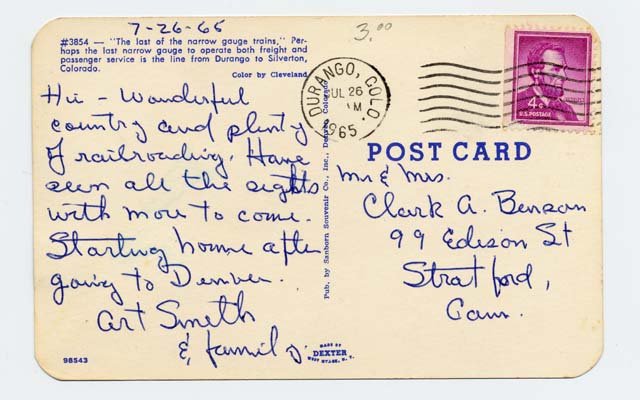 7-26-65
3.00
#3854 — "The last of the narrow gauge trains," Per-
haps the last narrow gauge to operate both freight and
passenger service is the line from Durango to Silverton,
Colorado.
Color by Cleveland
Hii – Wonderful
country and plenty
of railroading. Have
seen all the sights
with more to come.
Starting home after
going to Denver.
Art Smith
& family
98543
Pub. by Sanborn Souvenir Co., Inc., Denver, Colorado
MADE BY
DEXTER
WEST NYACK, N. Y.
DURANGO, COLO.
JUL 26
M
1965
4¢
U.S. POSTAGE
POST CARD
Mr & Mrs.
Clark A. Benson
99 Edison St
Stratford,
Conn.